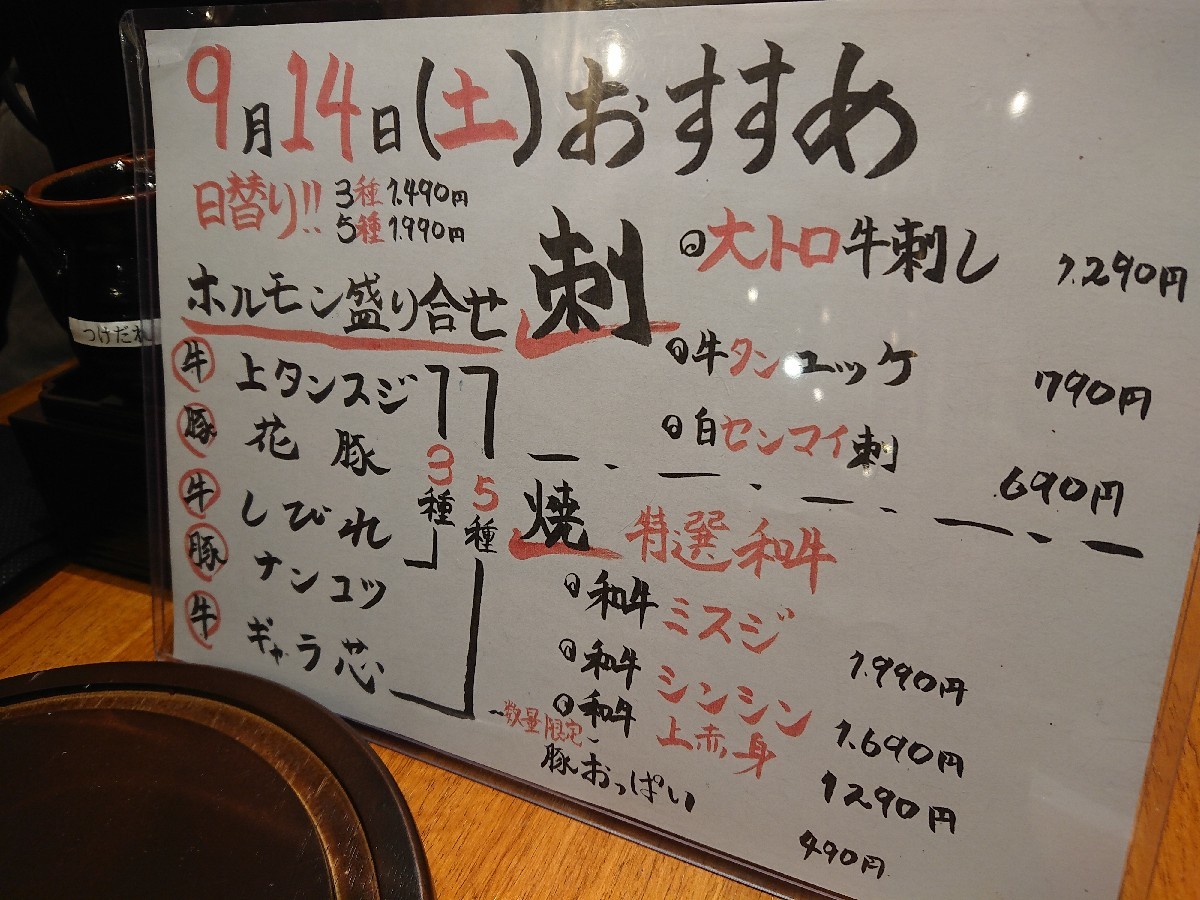 9月14日(土)おすすめ
日替り!! 3種 1.490円
5種 1.990円
ホルモン盛り合せ
牛 上タンスジ
豚 花豚
牛 しびれ
豚 ナンコツ
牛 ギャラ芯
3種
5種
刺
大トロ牛刺し 1.290円
牛タンユッケ 790円
白センマイ刺 690円
焼 特選和牛
和牛ミスジ 1.990円
和牛シンシン 1.690円
和牛上赤身 1290円
数量限定
豚おっぱい 490円
つけだれ